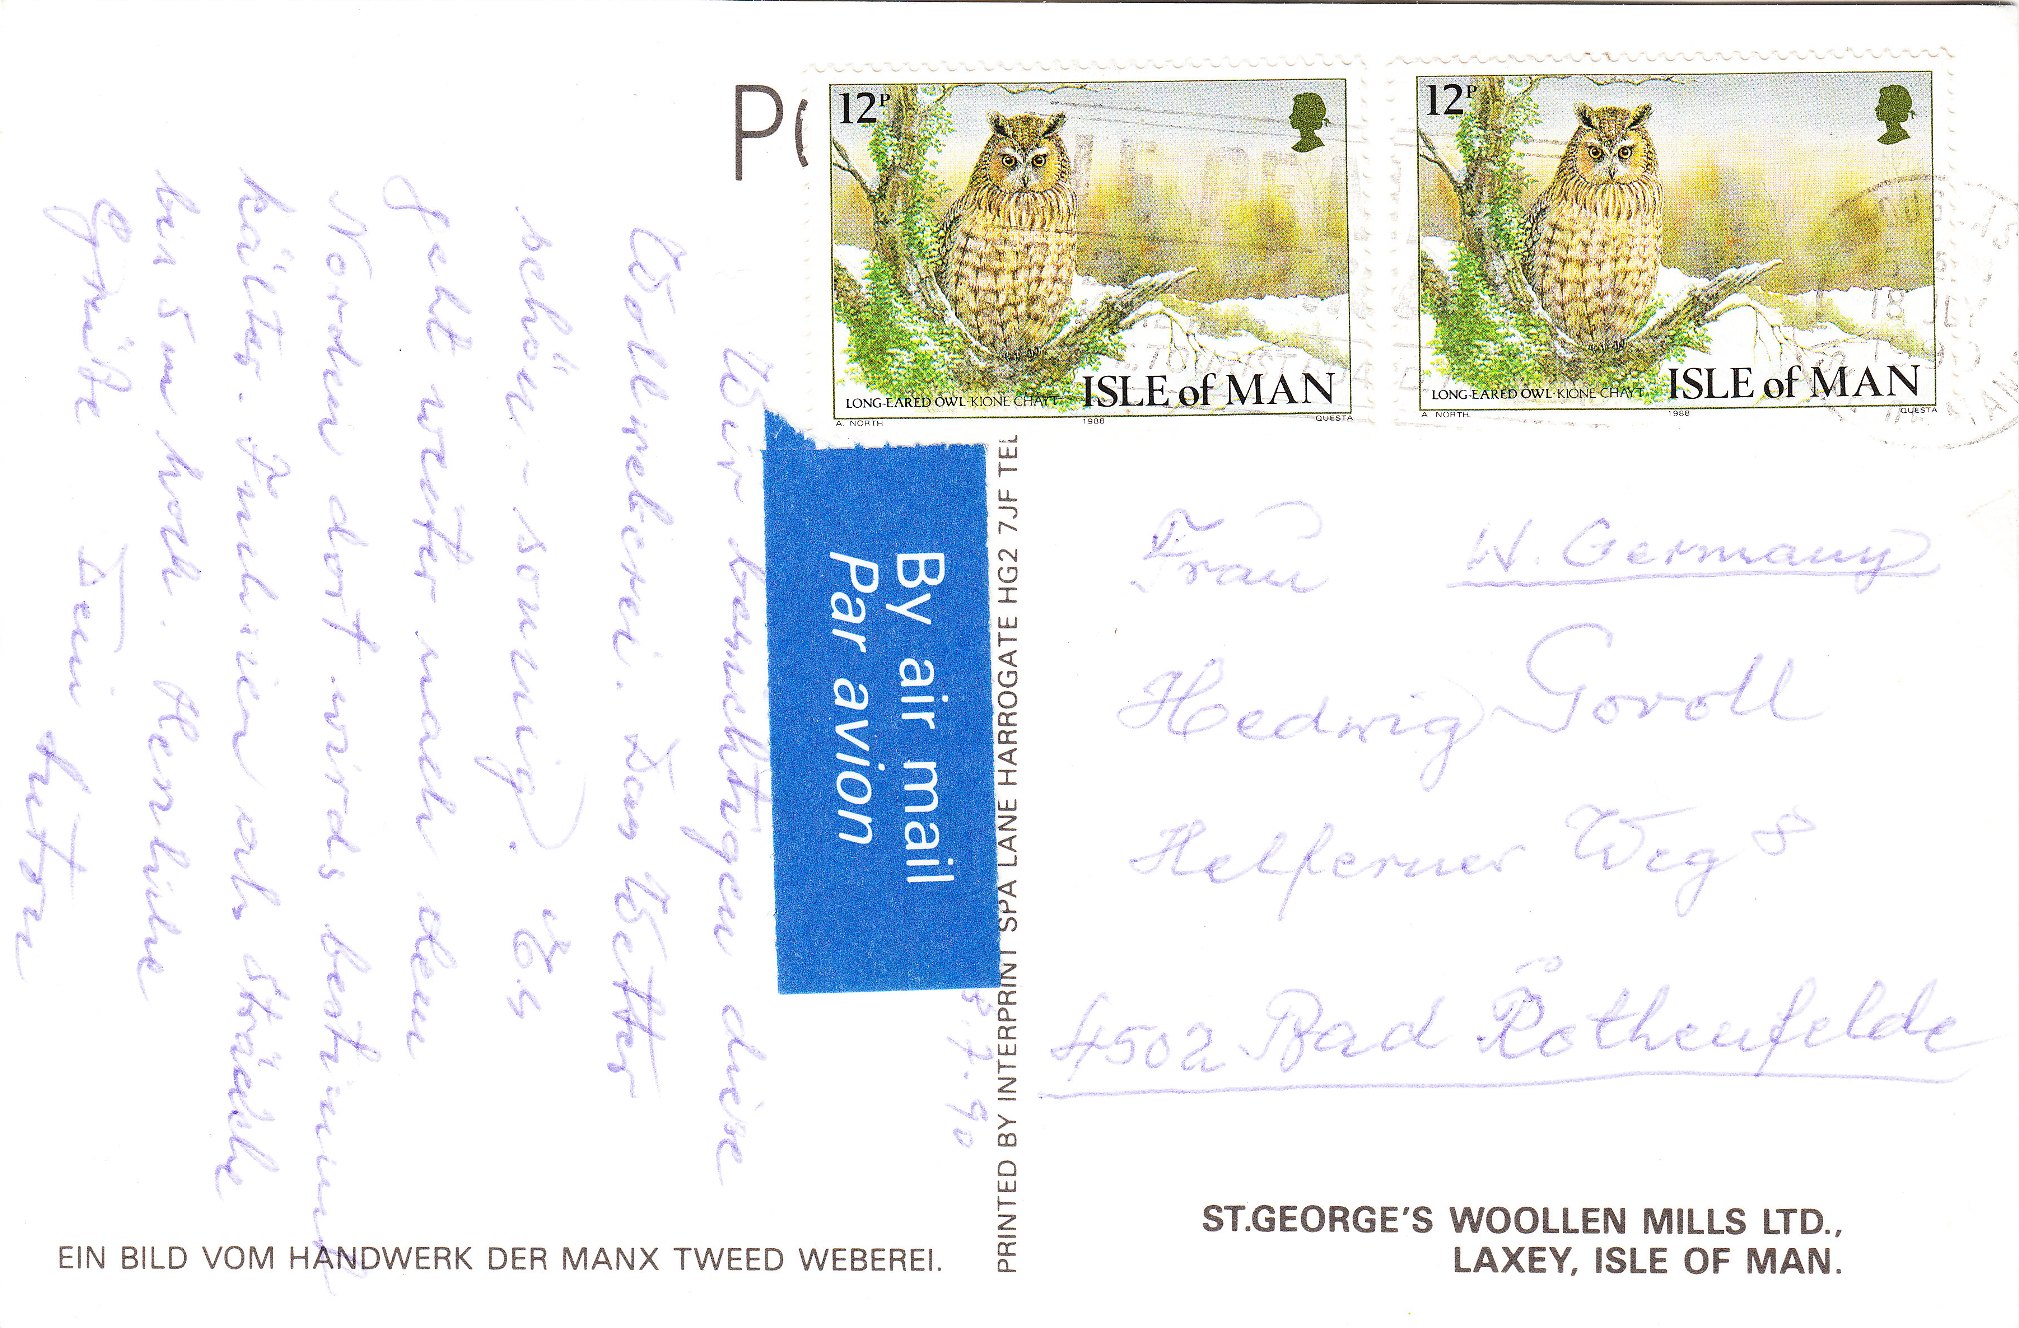 12P
ISLE of MAN
LONG-EARED OWL·KIONE CHAYT
A. NORTH 1988 QUESTA
12P
ISLE of MAN
LONG-EARED OWL·KIONE CHAYT
A. NORTH 1988 QUESTA
By air mail
Par avion
.7.90
Wir besichtigen diese
Wollweberei. Das Wetter
schön - sonnig. Es
geht weiter nach dem
Norden dort wird's bestimmt
kälter. Fuchsien als Sträucher
bis 5 m hoch. Herzliche
Grüße Dein
W. Germany
Frau
Hedwig Govoll
Helferner Weg 8
4502 Bad Rothenfelde
PRINTED BY INTERPRINT SPA LANE HARROGATE HG2 7JF TEL
EIN BILD VOM HANDWERK DER MANX TWEED WEBEREI.
ST.GEORGE'S WOOLLEN MILLS LTD.,
LAXEY, ISLE OF MAN.